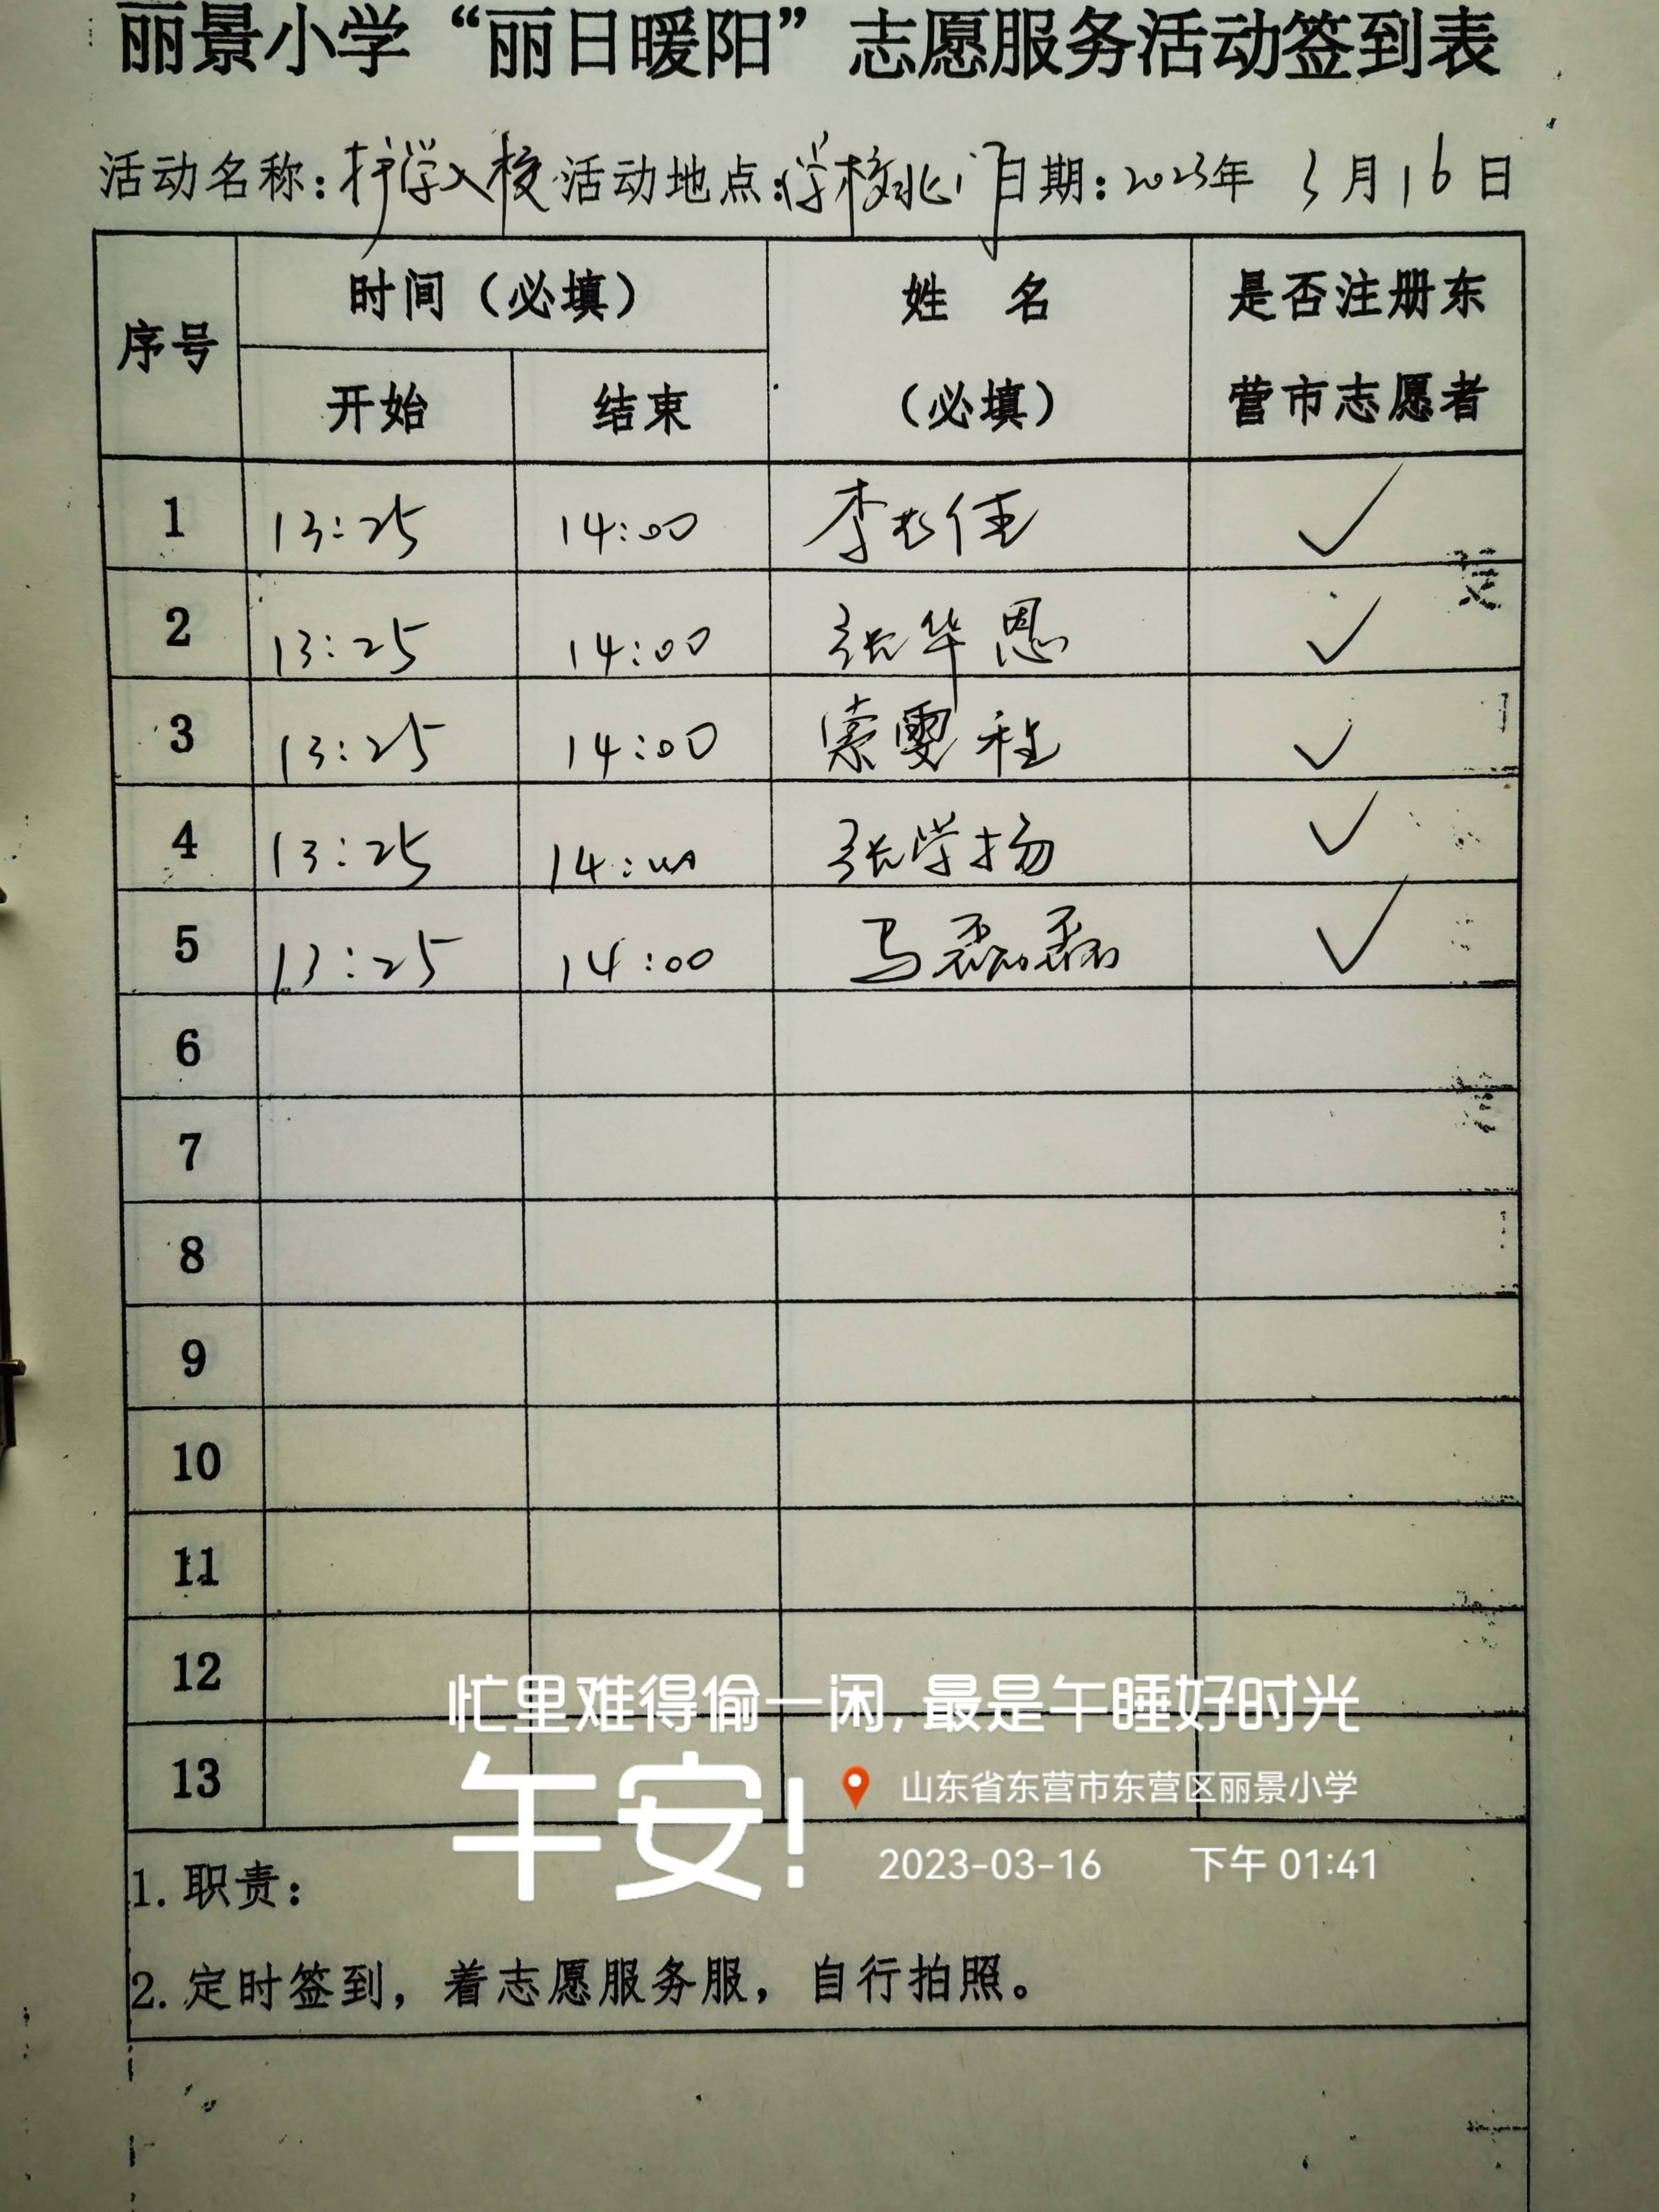 丽景小学“丽日暖阳”志愿服务活动签到表
活动名称：护学入校 活动地点：学校北门 日期：2023年 3月16日
序号 时间（必填） 姓 名（必填） 是否注册东营市志愿者
开始 结束
1 13:25 14:00 李 佳 ✓
2 13:25 14:00 张华恩 ✓
3 13:25 14:00 索雯 ✓
4 13:25 14:00 张学扬 ✓
5 13:25 14:00 马磊磊 ✓
6
7
8
9
10
11
12
13
忙里难得偷一闲，最是午睡好时光
午安！
山东省东营市东营区丽景小学
2023-03-16 下午 01:41
1. 职责：
2. 定时签到，着志愿服务服，自行拍照。